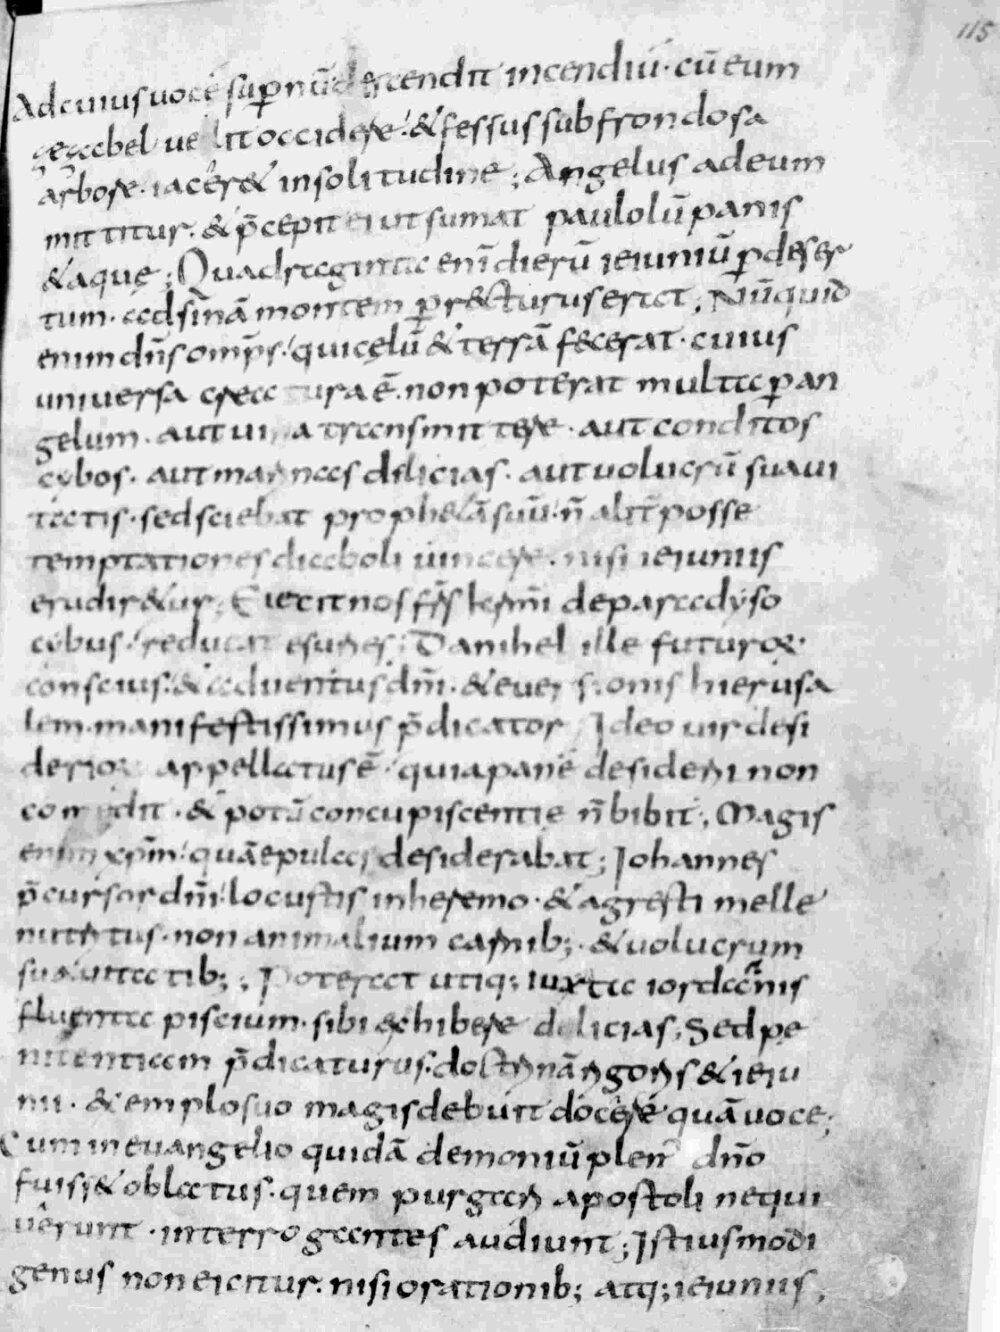 115
Ad cuius uocē supernū descendit incendiū. cū eum
zezabel uellit occidere. & fessus sub frondosa
arbore. iacer& in solitudine; Angelus ad eum
mittitur. & p̄cepit ei ut sumat paulolū panis
& aquę; Quadraginta enī dierū ieiuniū ꝑ deser
tum. ad sinā montem ꝑrecturus erat; Nūquid
enim dn̄s omp̄s. qui cęlū & terrā fecerat. cuius
uniuersa creatura ē. non poterat multa ꝑ an
gelum. aut uina transmittere. aut conditos
cybos. aut magnas delicias. aut uolucrū suaui
tatis. sed sciebat prophetā suū. n̄ alit̄ posse
temptationes diaboli uincere. nisi ieiuniis
erudir&ur; Eiecit nos fr̄s kr̄mi de paradyso
cybus. reducat esuries; Danihel ille futuroꝝ
conscius. & aduentus dn̄i. & euersionis hierusa
lem. manifestissimus p̄dicator; Ideo uir desi
derioꝝ appellatus ē. quia panē desiderii non
comedit. & potū concupiscentie n̄ bibit; Magis
enim xp̄m. quā epulas desiderabat; Johannes
p̄cursor dn̄i. locustis in heremo. & agresti melle
nutritus. non animalium carnib; & uolucrum
suauitatib;; Poterat utiq; iuxta iordanis
fluenta piscium. sibi exhibere delicias; Sed pe
nitentiam p̄dicaturus. doctrinā rigoris & ieiu
nii. & emplo suo magis debuit docere quā uoce;
Cum in euangelio quidā demoniū plen' dn̄o
fuiss& oblatus. quem purgari apostoli nequi
uerunt. interrogantes audiunt; Istiusmodi
genus non eicitur. nisi orationib; atq; ieiuniis;